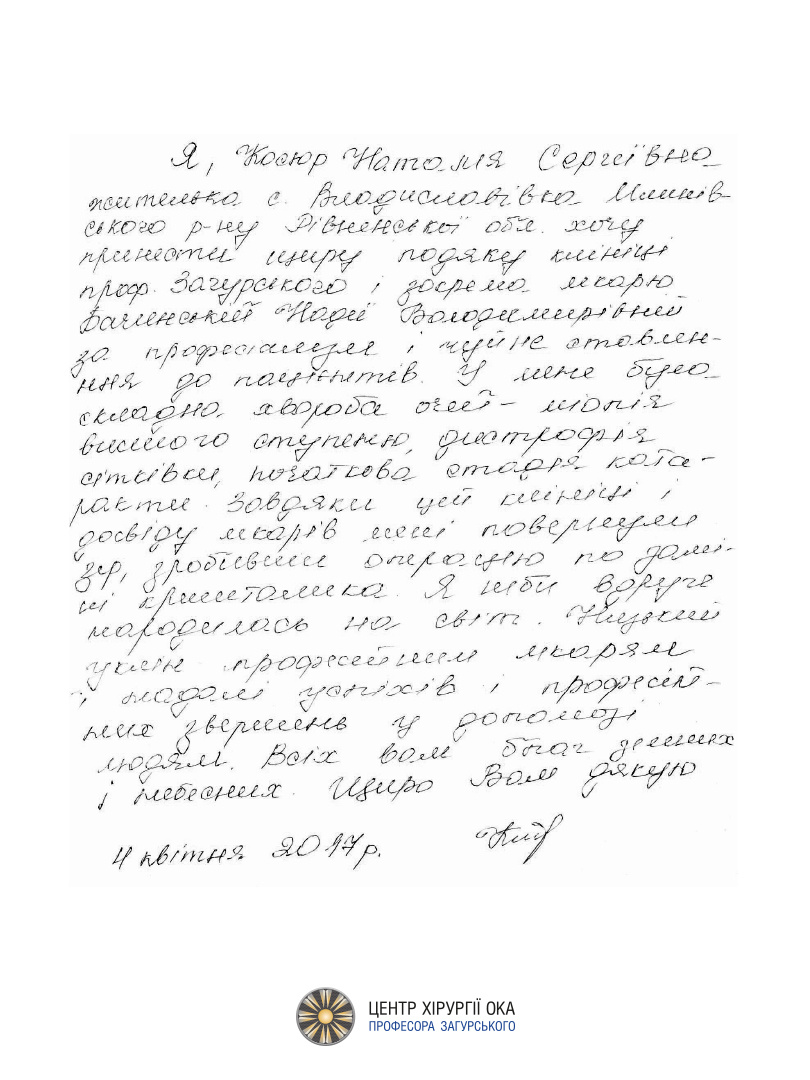 Я, Косюр Наталія Сергіївна
жителька с. Владиславівка Млинів-
ського р-ну Рівненської обл. хочу
принести щиру подяку клініці
проф. Загурського і зокрема лікарю
Бачинській Надії Володимирівній
за професіалізм і чуйне ставлен-
ння до пацієнтів. У мене була
складна хвороба очей – міопія
високого ступеню, дистрофія
сітківки, початкова стадія ката-
ракти. Завдяки цій клініці і
досвіду лікарів мені повернули
зір, зробивши операцію по замі-
ні кришталика. Я ніби вдруге
народилась на світ. Низький
уклін професійним лікарям
і надалі успіхів і професій-
них звершень у допомозі
людям. Всіх вам благ земних
і небесних. Щиро Вам дякую
4 квітня 2017 р.
ЦЕНТР ХІРУРГІЇ ОКА
ПРОФЕСОРА ЗАГУРСЬКОГО